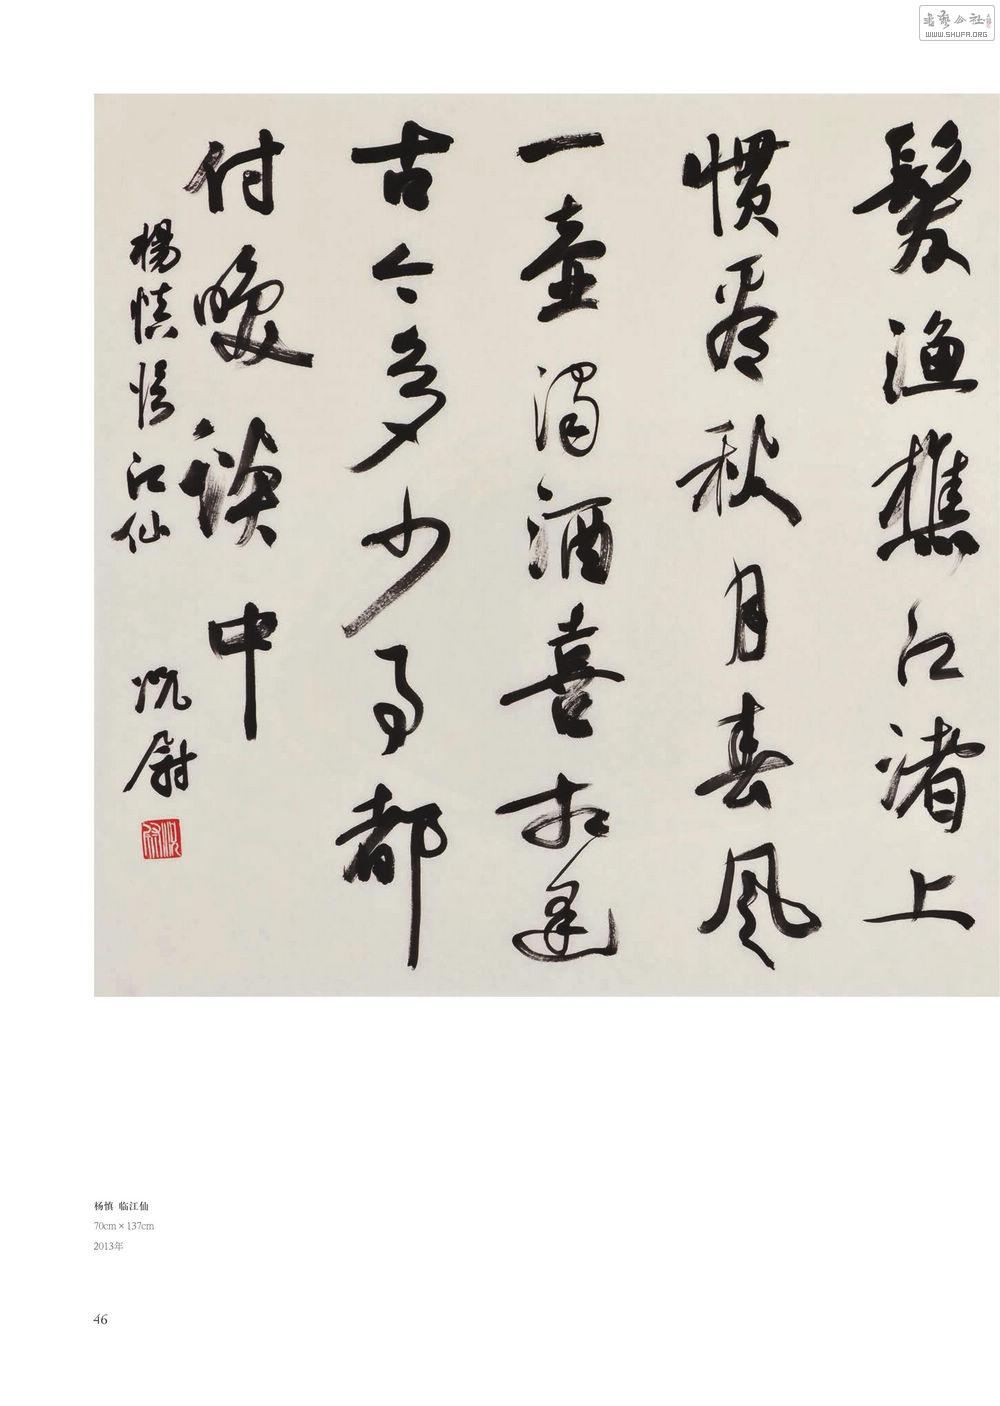 書藝公社
WWW.SHUFA.ORG
髮漁樵江渚上
惯看秋月春风
一壺濁酒喜相逢
古今多少事都
付咲談中
楊慎临江仙 况尉
杨慎 临江仙
70cm×137cm
2013年
46